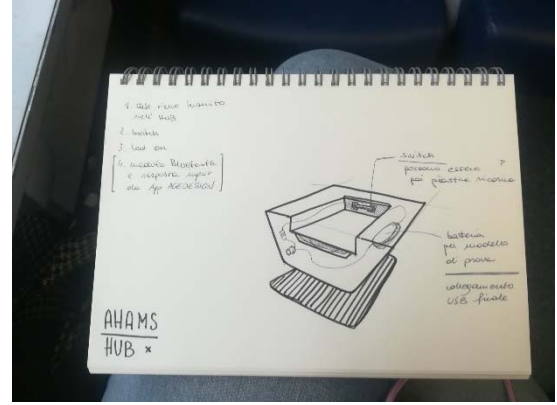 1. case viene inserito
nell' HUB
2. switch
3. led on
4. modulo Bluetooth
e risposta input
da App AGEDESIGN
switch
possono essere ?
poi piastre ricarica
batteria
per modello
di prova
collegamento
USB finale
AHAMS
HUB x